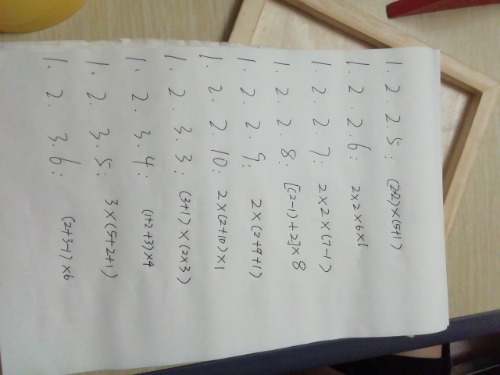 1. 2. 2. 5: (2×2)×(5+1)
1. 2. 2. 6: 2×2×6×1
1. 2. 2. 7: 2×2×(7-1)
1. 2. 2. 8: [(2-1)+2]×8
1. 2. 2. 9: 2×(2+9+1)
1. 2. 2 10: 2×(2+10)×1
1. 2. 3. 3: (3+1)×(2×3)
1. 2. 3. 4: (1+2+3)×4
1. 2. 3. 5: 3×(5+2+1)
1. 2. 3. 6: (2+3-1)×6